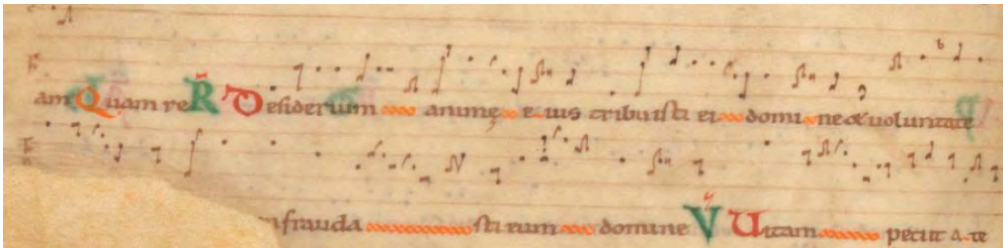 am Quam re R Desiderium animę eius tribuisti ei domine & uoluntate
frauda sti eum domine V Uitam petiit a te